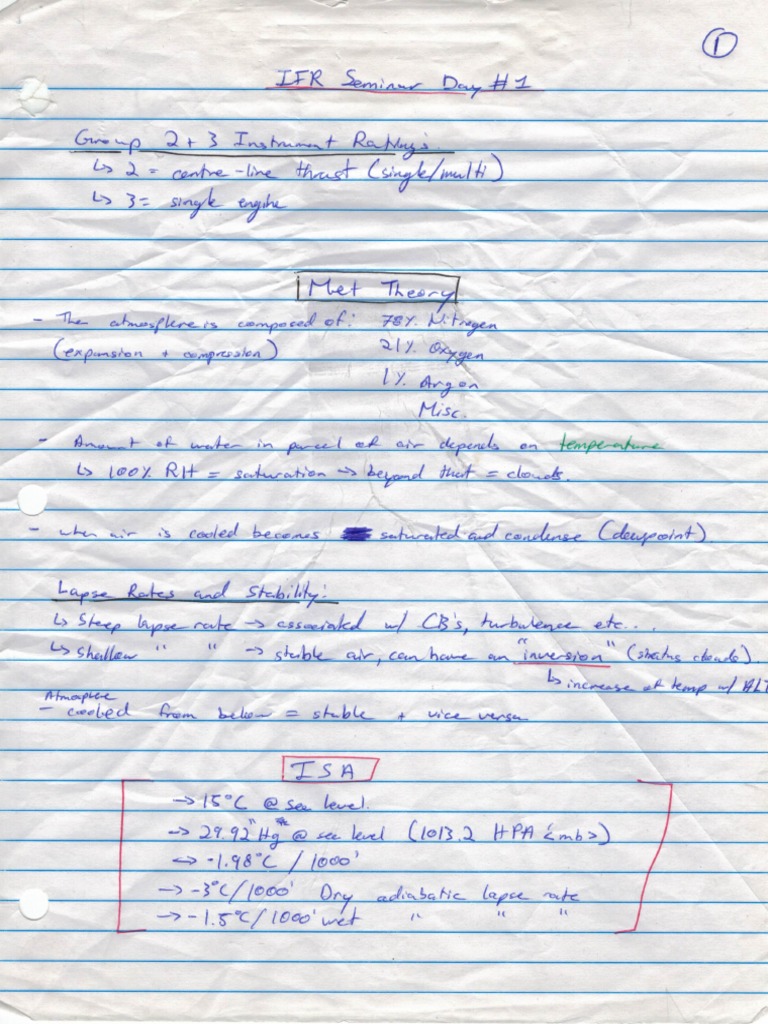 1
IFR Seminar Day #1
Group 2 + 3 Instrument Ratings
↳ 2 = centre-line thrust (single/multi)
↳ 3 = single engine
Met Theory
- The atmosphere is composed of: 78% Nitrogen
(expansion + compression) 21% Oxygen
1% Argon
Misc.
- Amount of water in parcel of air depends on temperature
↳ 100% RH = saturation → beyond that = clouds.
- when air is cooled becomes saturated and condense (dewpoint)
Lapse Rates and Stability:
↳ Steep lapse rate → associated w/ CB's, turbulence etc...
↳ Shallow " " → stable air, can have an "inversion" (stratus clouds).
↳ increase of temp w/ ALT
Atmosphere
- cooled from below = stable + vice versa
ISA
→ 15°C @ sea level.
→ 29.92"Hg @ sea level (1013.2 HPA <mb>)
↔ -1.98°C / 1000'
→ -3°C/1000' Dry adiabatic lapse rate
→ -1.5°C/1000' wet " " "